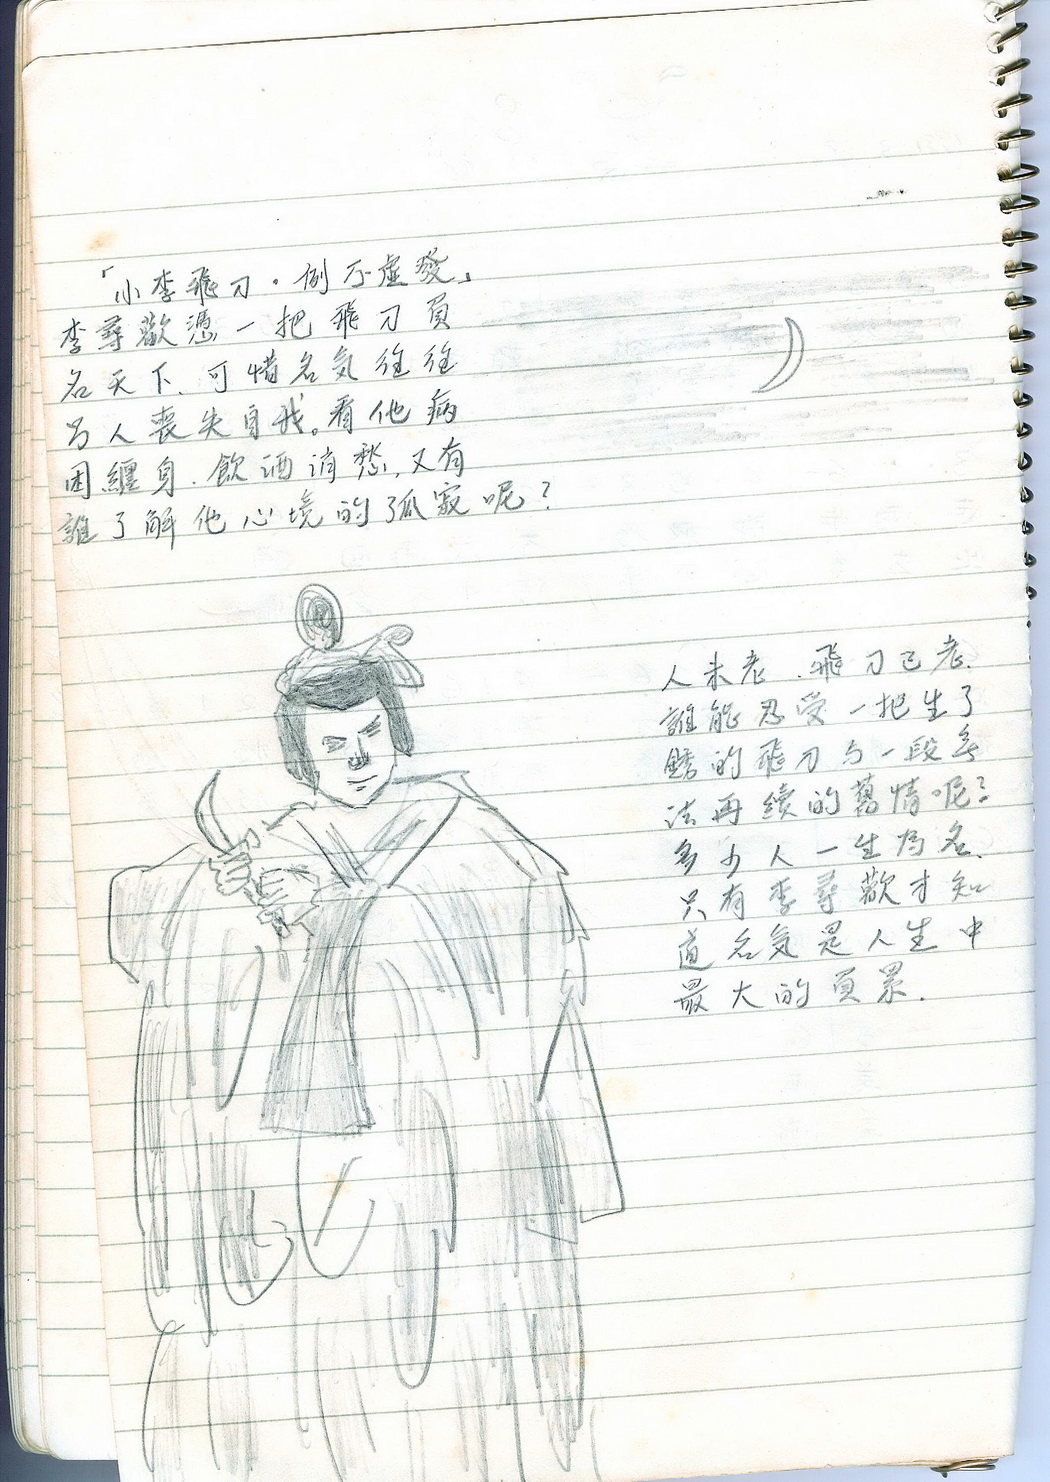 「小李飛刀。例不虛發」
李尋歡憑一把飛刀負
名天下、可惜名気往往
另人喪失自我。看他病
困纏身、飲酒消愁，又有
誰了解他心境的孤寂呢？
人未老、飛刀已老、
誰能忍受一把生了
鏽的飛刀与一段無
法再續的舊情呢？
多少人一生為名、
只有李尋歡才知
道名気是人生中
最大的負累．